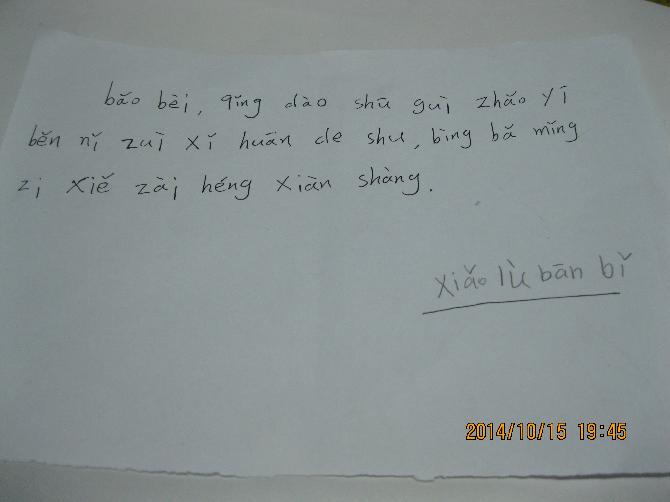 bǎo bèi, qǐng dào shū guì zhǎo yī
běn nǐ zuì xǐ huān de shu, bìng bǎ míng
zi xiě zài héng xiàn shàng.
xiǎo lù bān bǐ
2014/10/15 19:45